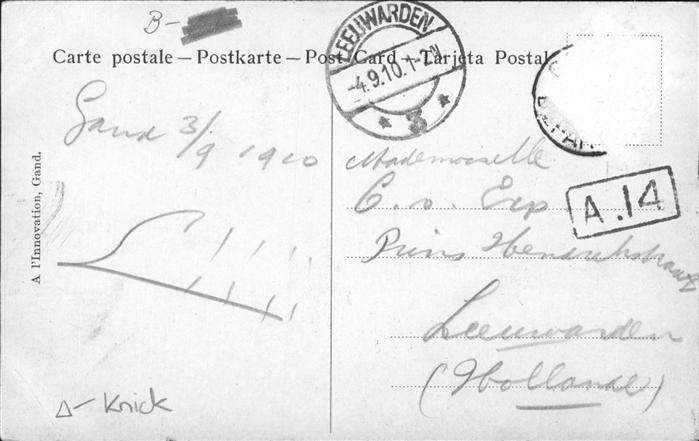 B-
Carte postale — Postkarte — Post Card — Tarjeta Postal
LEEUWARDEN
-4.9.10.1-2N
3
DEPART
Gand 3/9 1910
A l'Innovation, Gand.
Mademoiselle
C. v. Erp
A.14
Prins Hendrikstraat
Leeuwarden
(Hollande)
Knick